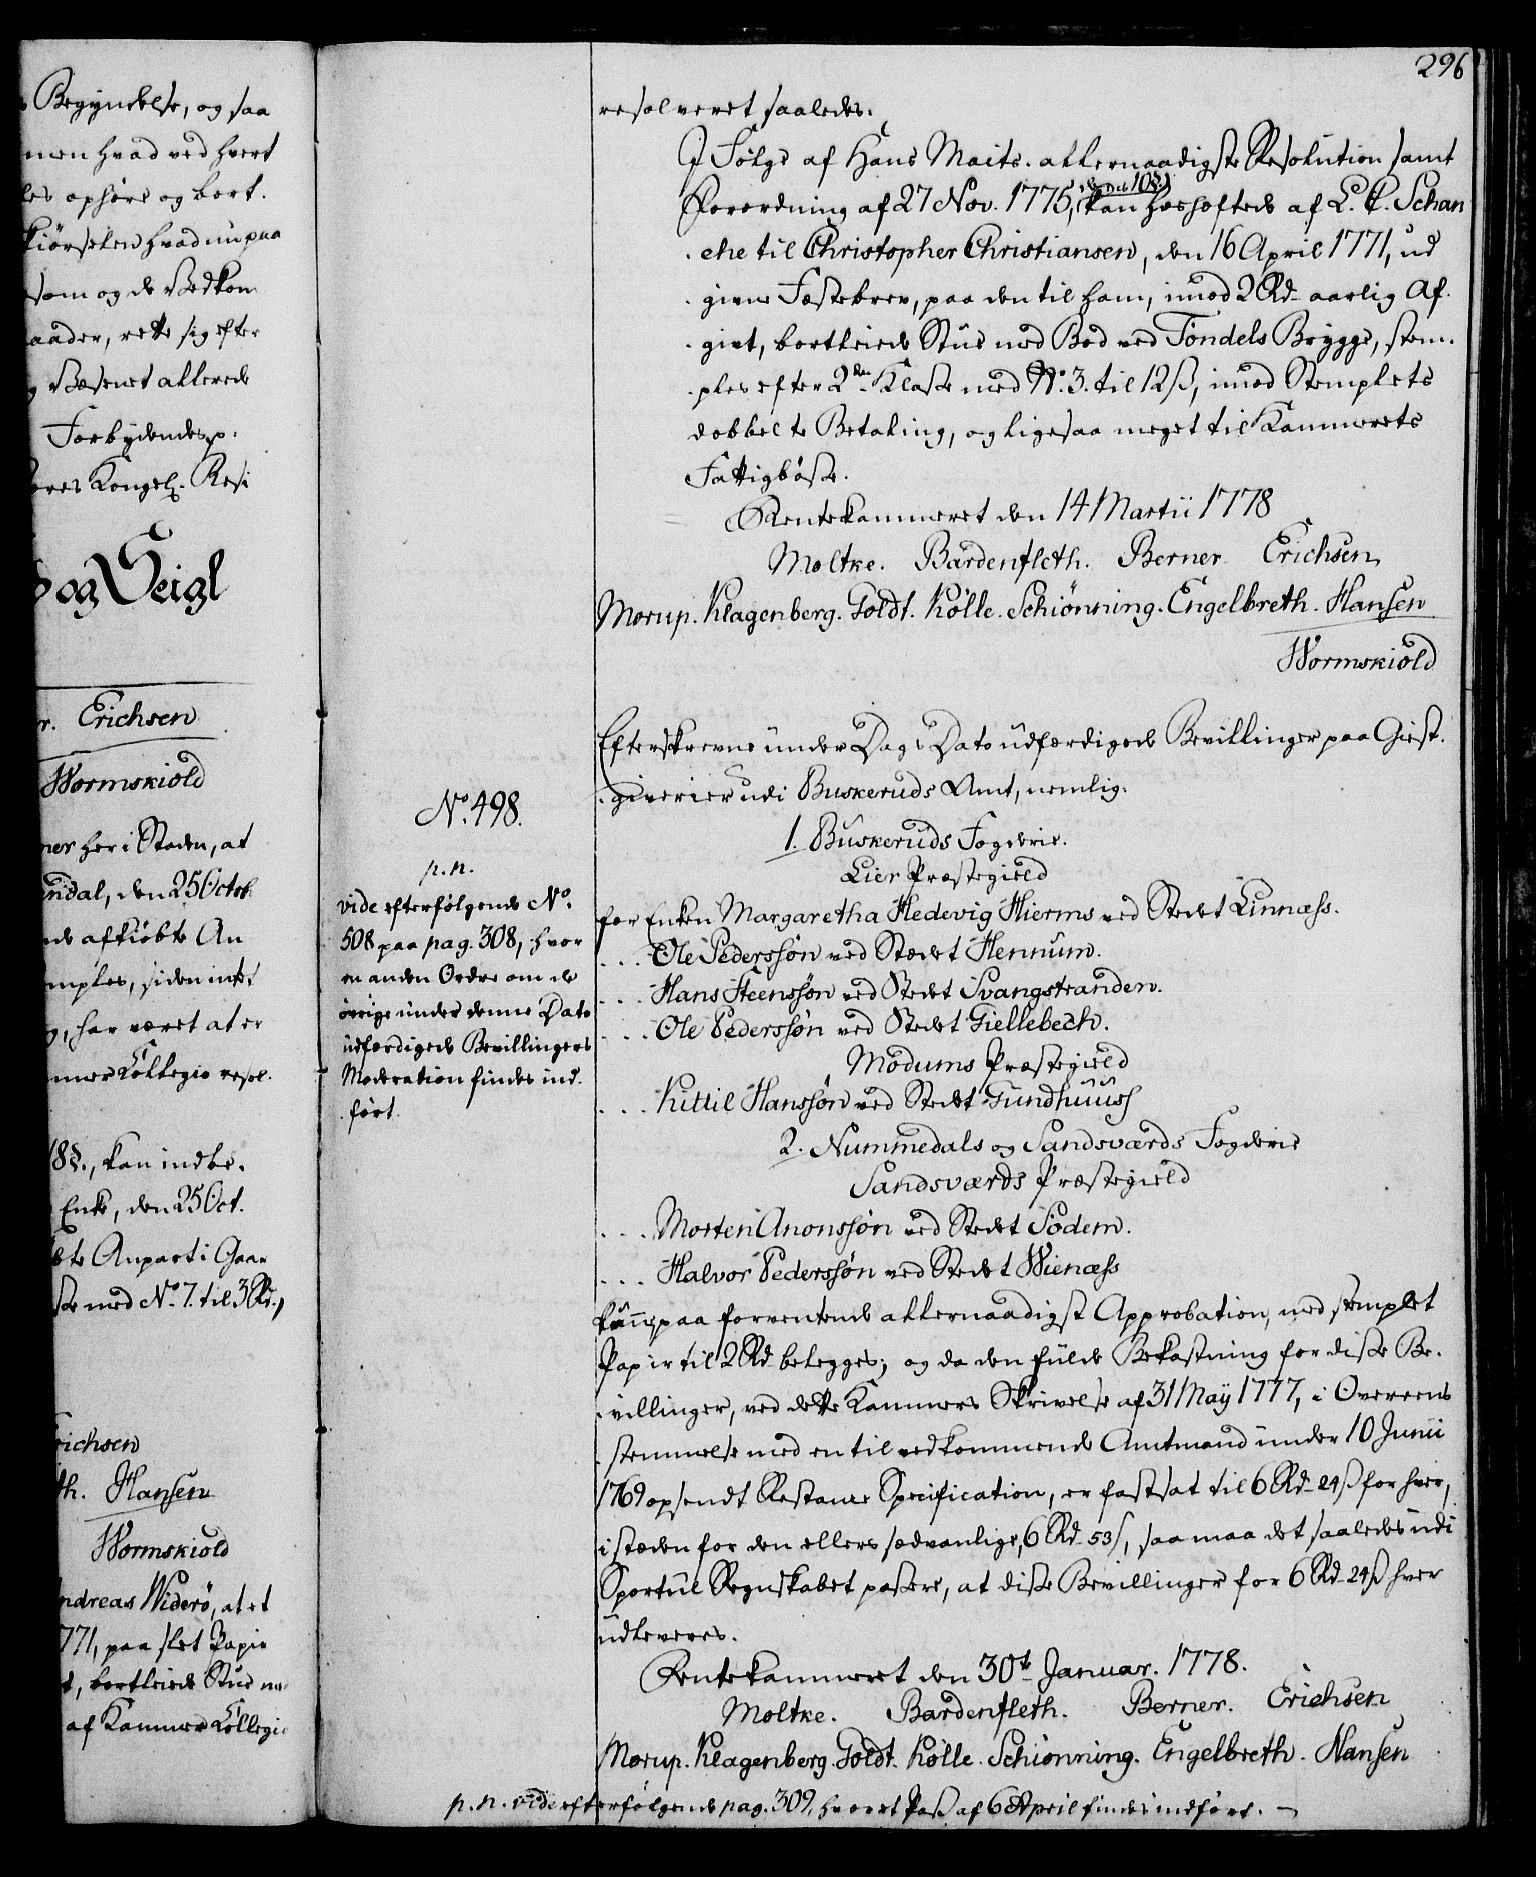 296
Begyndelse, og saa
men hvad ved hvert
les ophøre og bort.
kiørselen hvad nu paa
som og de Vedkom
aader, rette sig efter
Væsenet allerede
Forbydende p.
vores Kongel. Resi
og Seigl
r. Erichsen
Wormskiold
ner her i Staden, at
endal, den 25 Octob.
nde afkiøbte An
mples, siden intet
g, har været at er
mmer Collegio resol.
18 §., kan indbe.
Enke, den 25 Oct.
bte Anpart i Gaar
ske med No. 7. til 3 Rd.,
Erichsen
th. Hansen
Wormskiold
ndreas Widerö, at et
771, paa slet Papir
d, bortleiede Stue me
af Kammer Collegi
resolveret saaledes.
I Følge af Hans Maits. allernaadigste Resolution samt
Forordning af 27 Nov. 1775, dens 10 §. kan hoshæftede af L. C. Schan
che til Christopher Christiansen, den 16 April 1771, ud
givne Fæstebrev, paa den til ham, imod 2 Rd aarlig Af.
givt, bortleiede Stue med Bod ved Tøndels Brygge, stem.
ples efter 2den Klasse med No. 3. til 12 ß, imod Stemplets
dobbelte Betaling, og ligesaa meget til Kammerets
Fattigbøsse.
Rentekammeret den 14 Martii 1778
Moltke. Bardenfleth. Berner Erichsen
Morup. Klagenberg. Goldt. Kölle. Schiönning. Engelbreth. Hansen
Wormskiold
No. 498.
p. n.
vide efterfølgende No.
508 paa pag. 308, hvor
en anden Ordre om de
øvrige under denne Dato
udfærdigede Bevillingers
Moderation findes ind.
ført.
Efterskrevne under Dags Dato udfærdigede Bevillinger paa Giest.
giverier udi Buskeruds Amt, nemlig.
1. Buskeruds Fogderie.
Lier Præstegield
for Enken Margaretha Hedevig Hierms ved Stedet Linnæss.
... Ole Pederssøn ved Stædet Hennum.
... Hans Steenssøn ved Stedet Svangstranden.
... Ole Pederssøn ved Stedet Giellebech.
Modums Præstegield
... Kittil Hanssøn ved Stedet Gundhuus
2. Nummedals og Sandsværds Fogderie
Sandsværds Præstegield
... Morten Anonssøn ved Stedet Sodem.
... Halvor Pederssøn ved Stedet Wienæss
kunne paa forventende allernaadigst Approbation, med stemplet
Papir til 2 Rd belegges; og da den fulde Bekostning for disse Be.
villinger, ved dette Kammers Skrivelse af 31 May 1777, i Overeens
stemmelse med en til vedkommende Amtmand under 10 Junii
1769 opsendt Restance Specification, er fastsat til 6 Rd 24 ß for hver,
i stæden for den ellers sædvanlige, 6 Rd 53 ß, saa maa det saaledes udi
Sportul Regnskabet passere, at disse Bevillinger for 6 Rd 24 ß hver
udleveres.
Rentekammeret den 30te Januar. 1778.
Moltke. Bardenfleth. Berner. Erichsen
Morup. Klagenberg. Goldt. Kölle. Schiönning. Engelbreth. Hansen
p. n. vide efterfølgende pag. 309, hvor et Pass af 6 April findes indført.